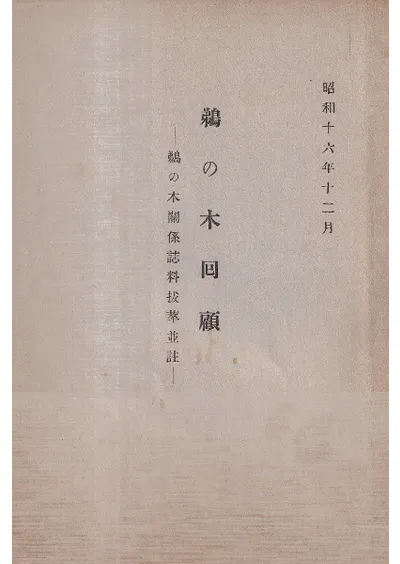 昭和十六年十二月
鵜の木回顧
―鵜の木關係誌料抜萃並註―